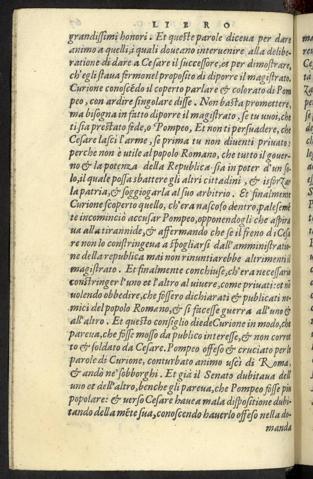 LIBRO
grandissimi honori. Et queste parole diceua per dare
animo a quelli, i quali doueano interuenire alla delibe-
ratione di dare a Cesare il successore, et per dimostrare,
ch'egli staua fermo nel proposito di diporre il magistrato.
Curione conoscẽdo il coperto parlare & colorato di Pom
peo, con ardire singolare disse. Non basta promettere,
ma bisogna in fatto diporre il magistrato, se tu vuoi, che
ti sia prestato fede, o Pompeo, Et non ti persuadere, che
Cesare lasci l'arme, se prima tu non diuenti priuato:
perche non è vtile al popolo Romano, che tutto il gouer-
no & la potenza della Republica sia in poter d'un so-
lo, il quale possa sbattere gli altri cittadini, & isforzar
la patria, & soggiogarla al suo arbitrio. Et finalmente
Curione scoperto quello, ch'era nascoso dentro, palesemẽ
te incominciò accusar Pompeo, opponendogli che aspira
ua alla tirannide, & affermando che se il freno di Cesa
re non lo constringeua a spogliarsi dall'amministratio
ne della republica mai non rinuntiarebbe altrimenti il
magistrato. Et finalmente conchiuse, ch'era necessario
constringer l'uno et l'altro al viuere, come priuati: et nõ
volendo obbedire, che fossero dichiarati & publicati ni-
mici del popolo Romano, & si facesse guerra all'uno &
all'altro. Et questo consiglio diede Curione in modo, che
pareua, che fosse mosso da publico interesse, & non corrot
to & soldato da Cesare. Pompeo offeso & cruciato per le
parole di Curione, conturbato animo uscì di Roma,
& andò ne' sobborghi. Et già il Senato dubitaua dell'
uno et dell'altro, benche gli pareua, che Pompeo fosse piu
popolare: & verso Cesare haueua mala dispositione dubi-
tando della mẽte sua, conoscendo hauerlo offeso nella do-
manda